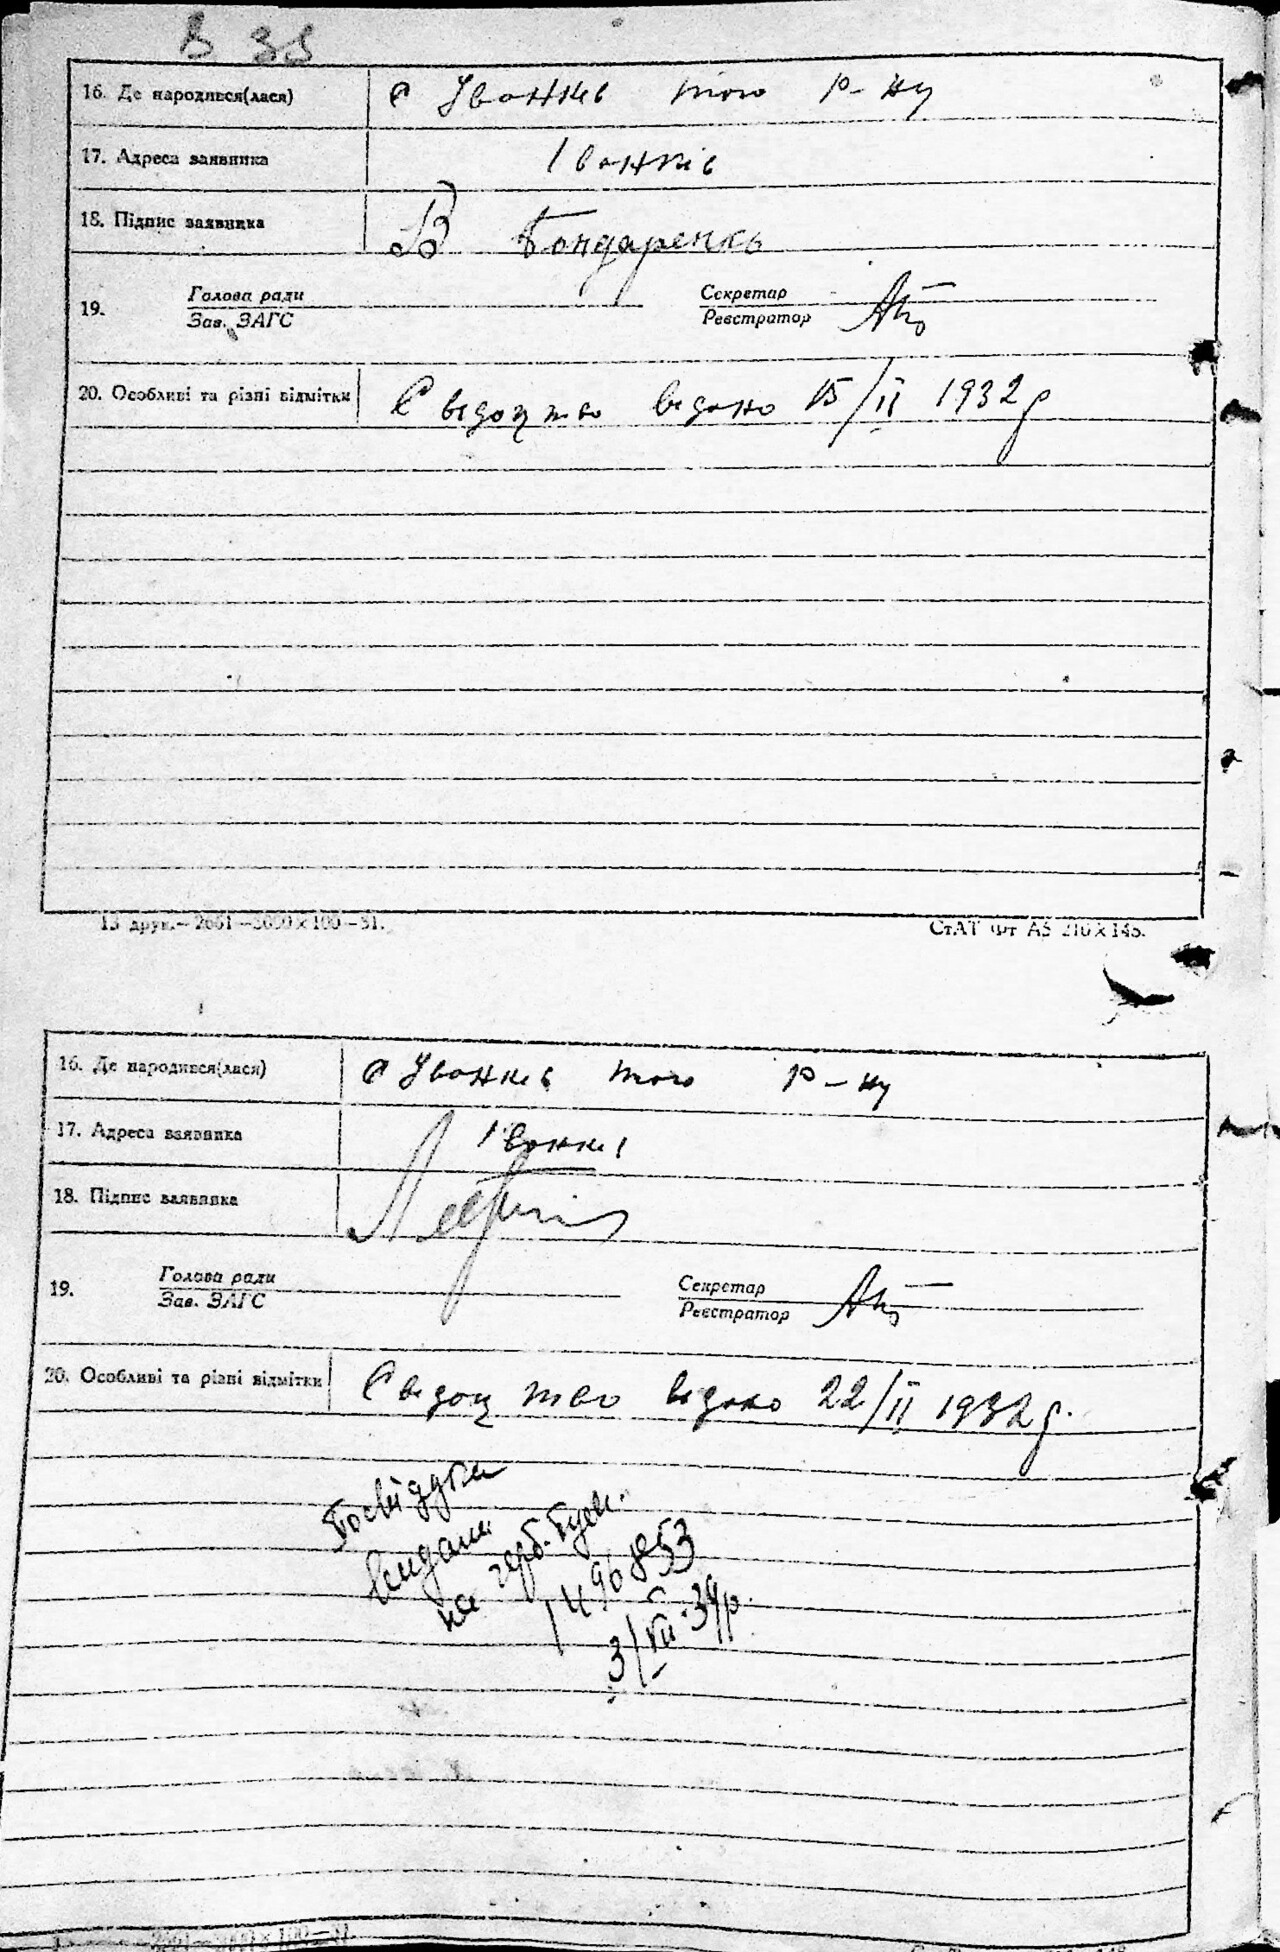 16. Де народився(лася) с Іванків того р-ну
17. Адреса заявника Іванків
18. Підпис заявника В Бондаренко
19. Голова ради Секретар
Зав. ЗАГС Реєстратор
20. Особливі та різні відмітки Свідоцтво видано 15/II 1932 р
13 друк.—2661—5000×100—31. СтАТ Фт А5 210×148.
16. Де народився(лася) с Іванків того р-ну
17. Адреса заявника Іванків
18. Підпис заявника
19. Голова ради Секретар
Зав. ЗАГС Реєстратор
20. Особливі та різні відмітки Свідоцтво видано 22/II 1932 р.
Посвідка
видана
на герб. бум.
1490853
3/VII-39р.